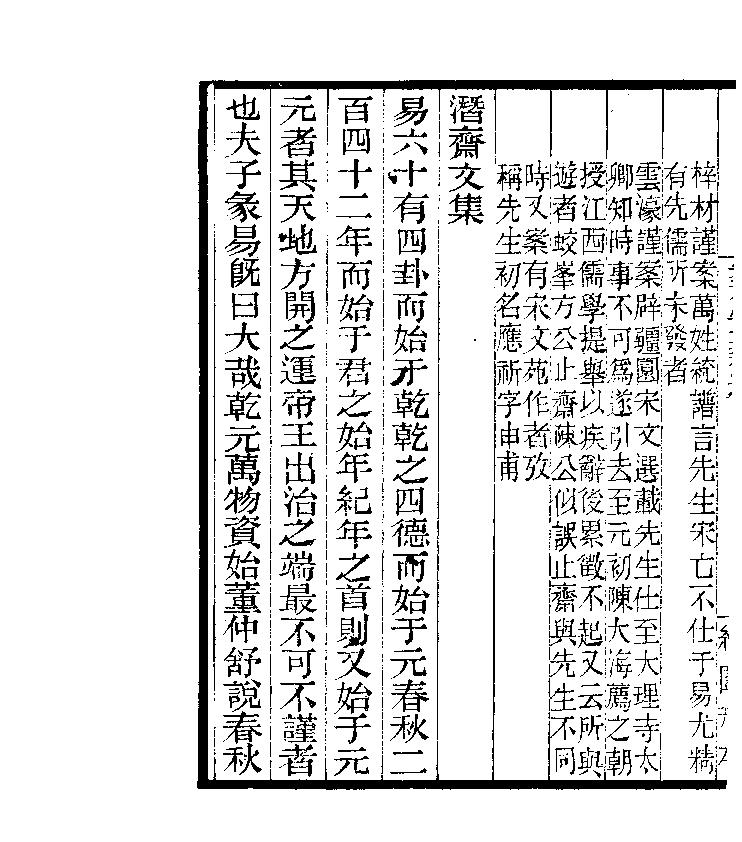 梓材謹案萬姓統譜言先生宋亡不仕于易尤精
有先儒所未發者
雲濠謹案辟疆園宋文選載先生仕至大理寺太
卿知時事不可爲遂引去至元初陳大海薦之朝
授江西儒學提舉以疾辭後累徵不起又云所與
遊者蛟峯方公止齋陳公似誤止齋與先生不同
時又案有宋文苑作者攷
稱先生初名應祈字申甫
潛齋文集
易六十有四卦而始于乾乾之四德而始于元春秋二
百四十二年而始于君之始年紀年之首則又始于元
元者其天地方開之運帝王出治之端最不可不謹者
也夫子彖易旣曰大哉乾元萬物資始董仲舒說春秋